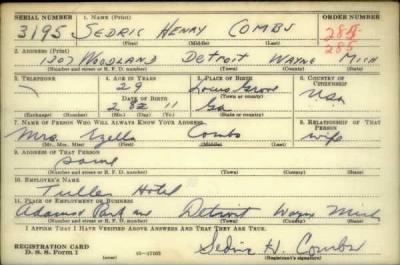 SERIAL NUMBER 1. NAME (Print) ORDER NUMBER
3195 SEDRIC HENRY COMBS 284
(First) (Middle) (Last) 285
2. ADDRESS (Print)
1303 WOODLAND DETROIT WAYNE MICH
(Number and street or R. F. D. number) (Town) (County) (State)
3. TELEPHONE 4. AGE IN YEARS 5. PLACE OF BIRTH 6. COUNTRY OF CITIZENSHIP
29 Locust Grove
DATE OF BIRTH (Town or county) USA
2 22 11 Ga
(Exchange) (Number) (Mo.) (Day) (Yr.) (State or country)
7. NAME OF PERSON WHO WILL ALWAYS KNOW YOUR ADDRESS 8. RELATIONSHIP OF THAT PERSON
Mrs Combs wife
(Mr., Mrs., Miss) (First) (Middle) (Last)
9. ADDRESS OF THAT PERSON
same
(Number and street or R. F. D. number) (Town) (County) (State)
10. EMPLOYER'S NAME
Tuller Hotel
11. PLACE OF EMPLOYMENT OR BUSINESS
Adams & Park ave Detroit Wayne Mich
(Number and street or R. F. D. number) (Town) (County) (State)
I AFFIRM THAT I HAVE VERIFIED ABOVE ANSWERS AND THAT THEY ARE TRUE.
REGISTRATION CARD Sedric H. Combs
D. S. S. Form 1 (Registrant's signature)